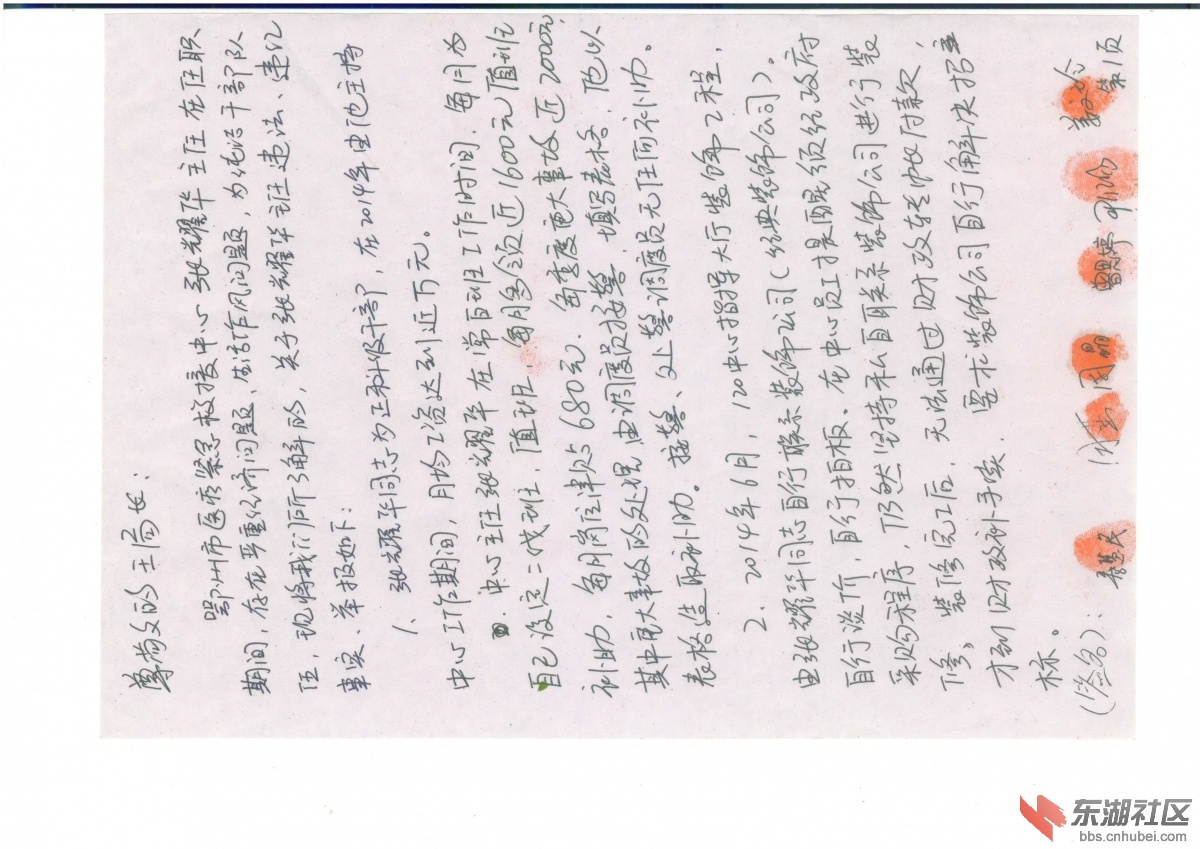 尊尚的王局长：
鄂州市医疗紧急救援中心 张耀华 主任 在任职
期间，存在严重经济问题、生活作风问题，为纯洁干部队
伍，现将我们所了解的，关于张耀华主任违法、违纪
事实、举报如下：
1、张耀华同志为正科级干部，在2014年由他主持
中心工作期间，月均工资达到近万元。
中心主任张耀华在常白班工作时间，每月为
自己设定二线班，值班，每月多领近1600元值班
补助，每月岗位津贴680元，每季度重大事故近2000元，
其中重大事故的处理，由调度员接警，填写表格，他以
表格造取补助。接警、处警调度员无任何补助。
2、2014年6月，120中心指挥大厅装饰工程，
由张耀华同志自行联系装饰公司（经典装饰公司）。
自行谈价，自行拍板。在中心员工提醒须经政府
采购程序，仍然坚持私自联系装饰公司进行装
修。装修完工后，无法通过财政转帐付款，
才到财政补手实，要求装饰公司自行解决招主
标。
（签名）：
第1页
东湖社区
bbs.cnhubei.com